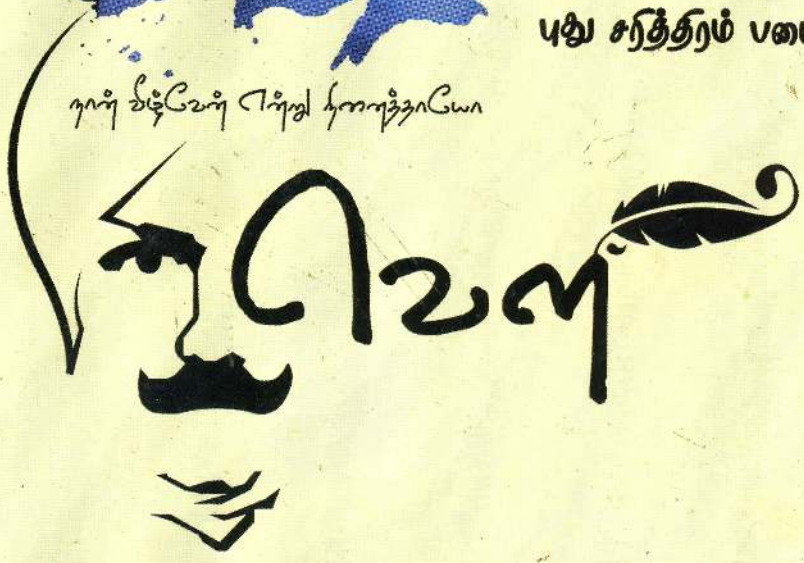 புது சரித்திரம்
நான் வீழ்வேன் என்று நினைத்தாயோ
வெளி